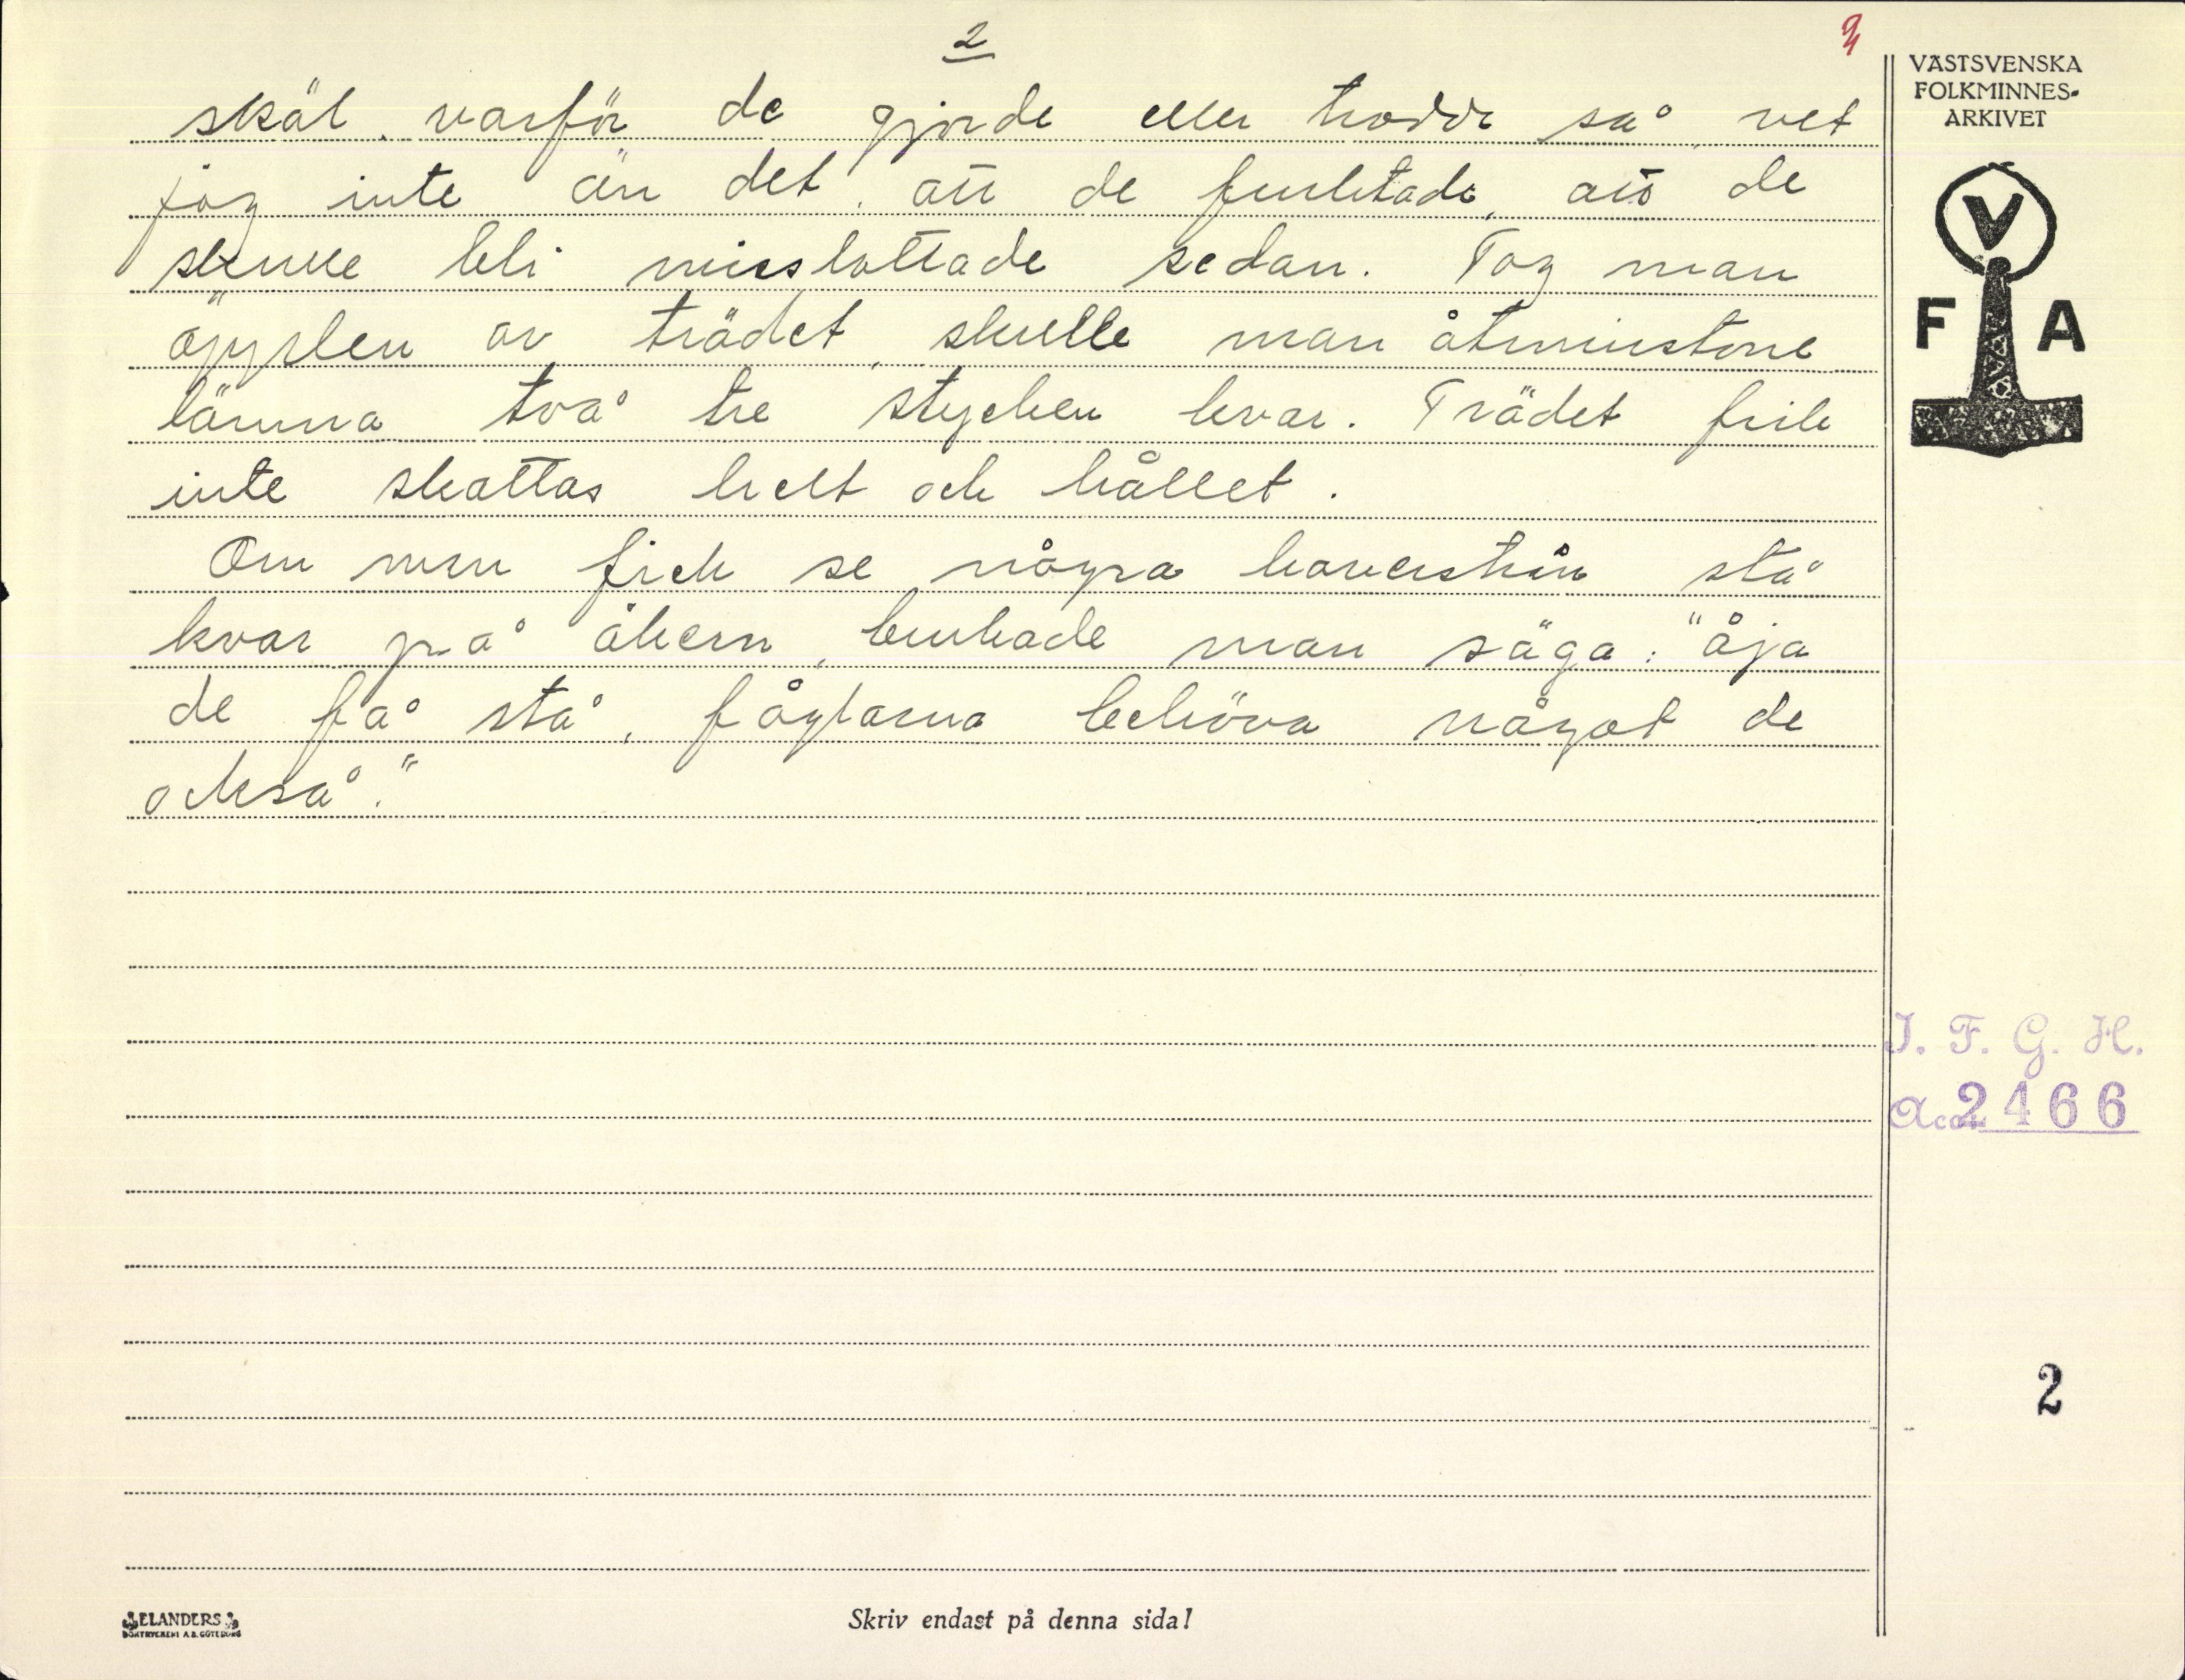 2
VÄSTSVENSKA
FOLKMINNES-
ARKIVET
skäl, varför de gjorde eller trodde så, vet
jag inte än det, att de fruktade, att de
skulle bli misslottade sedan. Tog man
äpplen av trädet, skulle man åtminstone
lämna två tre stycken kvar. Trädet fick
inte skattas helt och hållet.
Om man fick se några haverstrån stå
kvar på åkern, brukade man säga: "åja
de få stå, fåglarna behöva något de
också."
V
F A
I. F. G. H.
Acc. 2466
2
ELANDERS
BOKTRYCKERI A.B. GÖTEBORG
Skriv endast på denna sida!